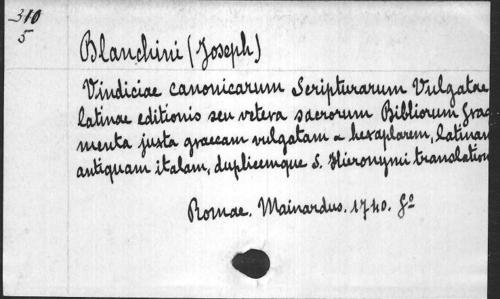 310
5
Blanchini (Joseph)
Vindiciae canonicarum Scripturarum Vulgatae
latinae editionis seu vetera sacrorum Bibliorum Frag
menta juxta graecam vulgatam & hexaplarem, latinam
antiquam italam, duplicemque S. Hieronymi translation
Romae. Mainardus. 1740. Fo